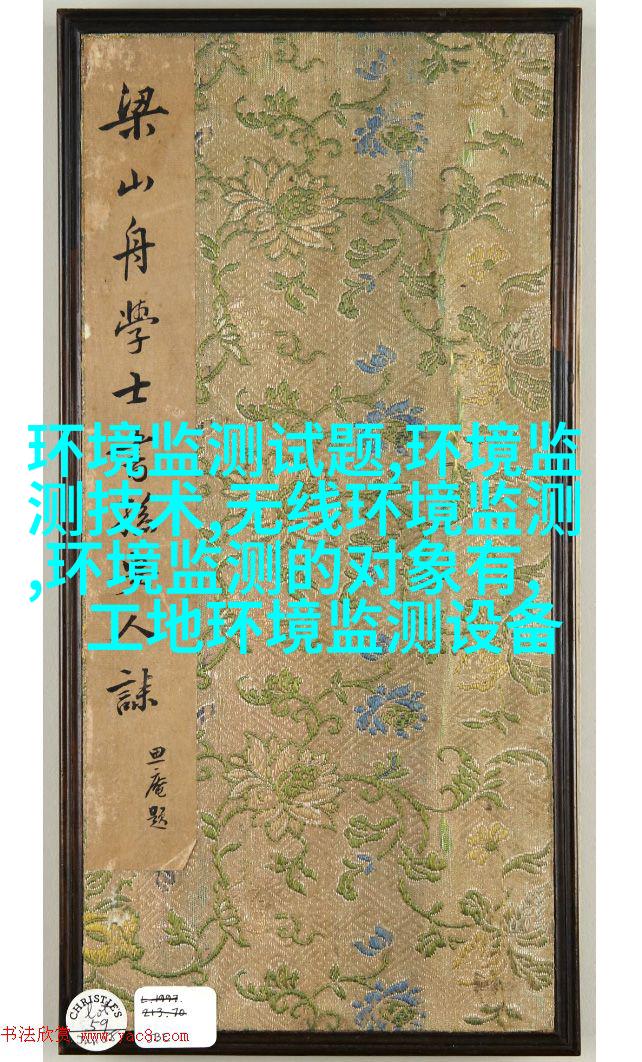 梁山舟学士写孫夫人誄
思庵题
环境监测试题,环境监
测技术,无线环境监测
,环境监测的对象有,
工地环境监测设备
CHRISTIE'S
Lot
59
L.1997.
213.70
书法欣赏 www.yac8.com